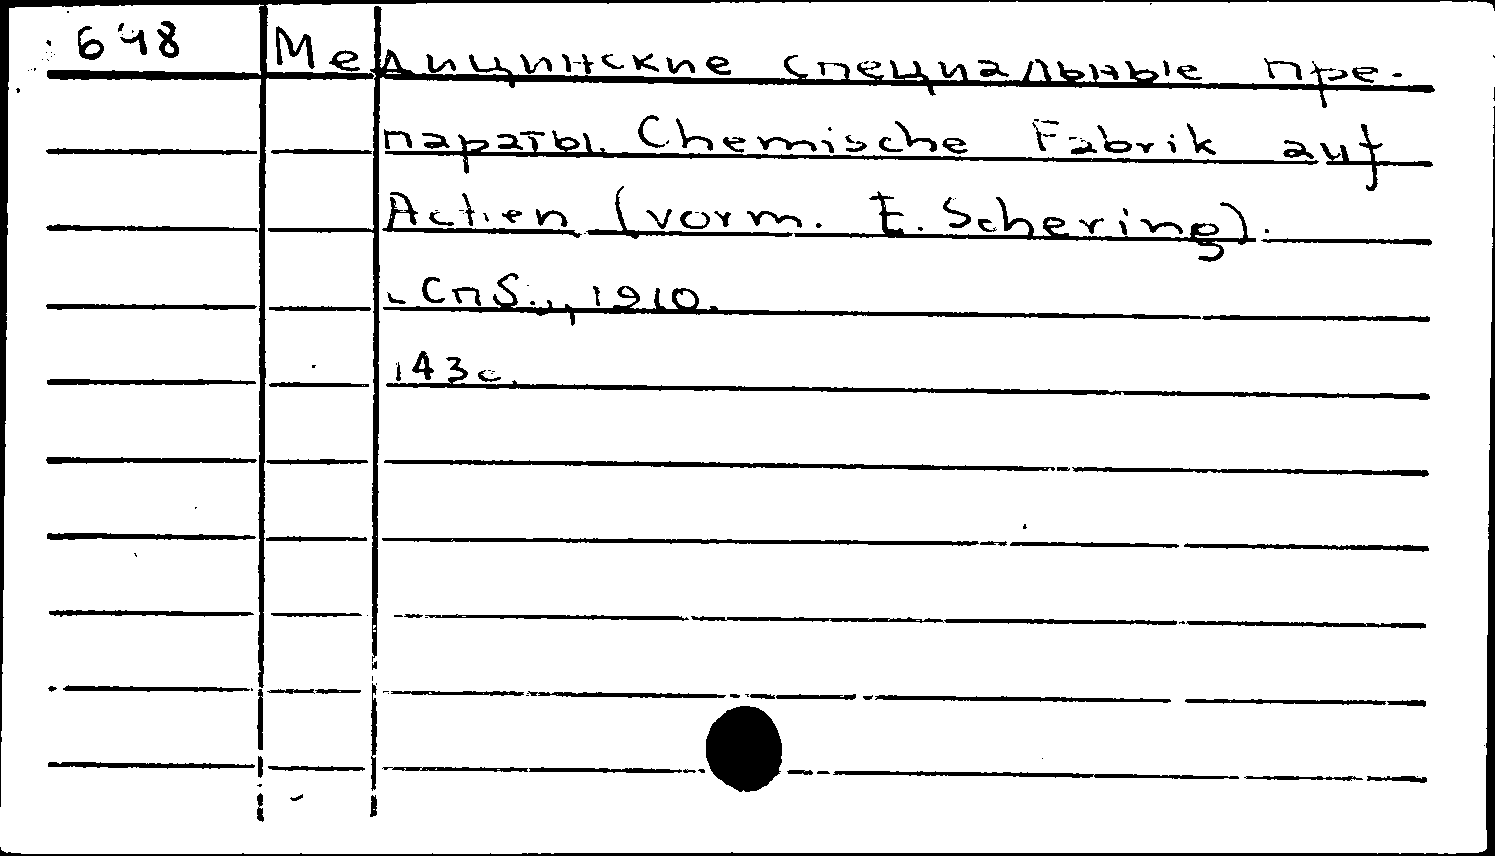 648 Медицинские специальные пре-
параты. Chemische Fabrik auf
Actien (vorm. E. Schering).
- Спб., 1910.
143 с.